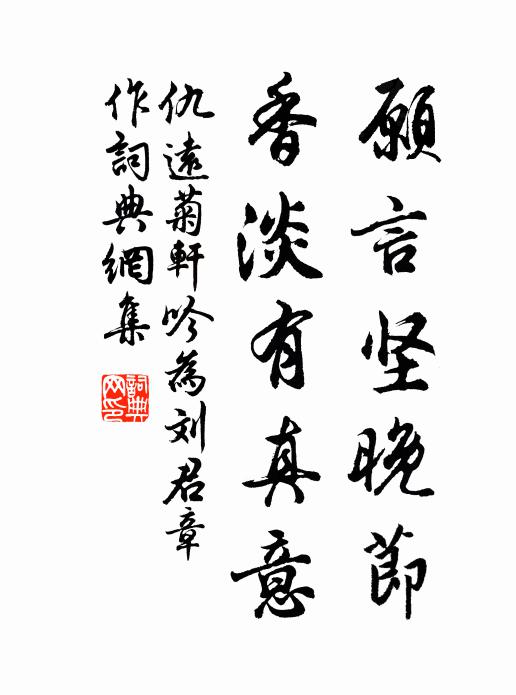 願言坚晚節
香淡有真意
仇遠菊軒吟為刘君章
作詞典網集
詞典
网印